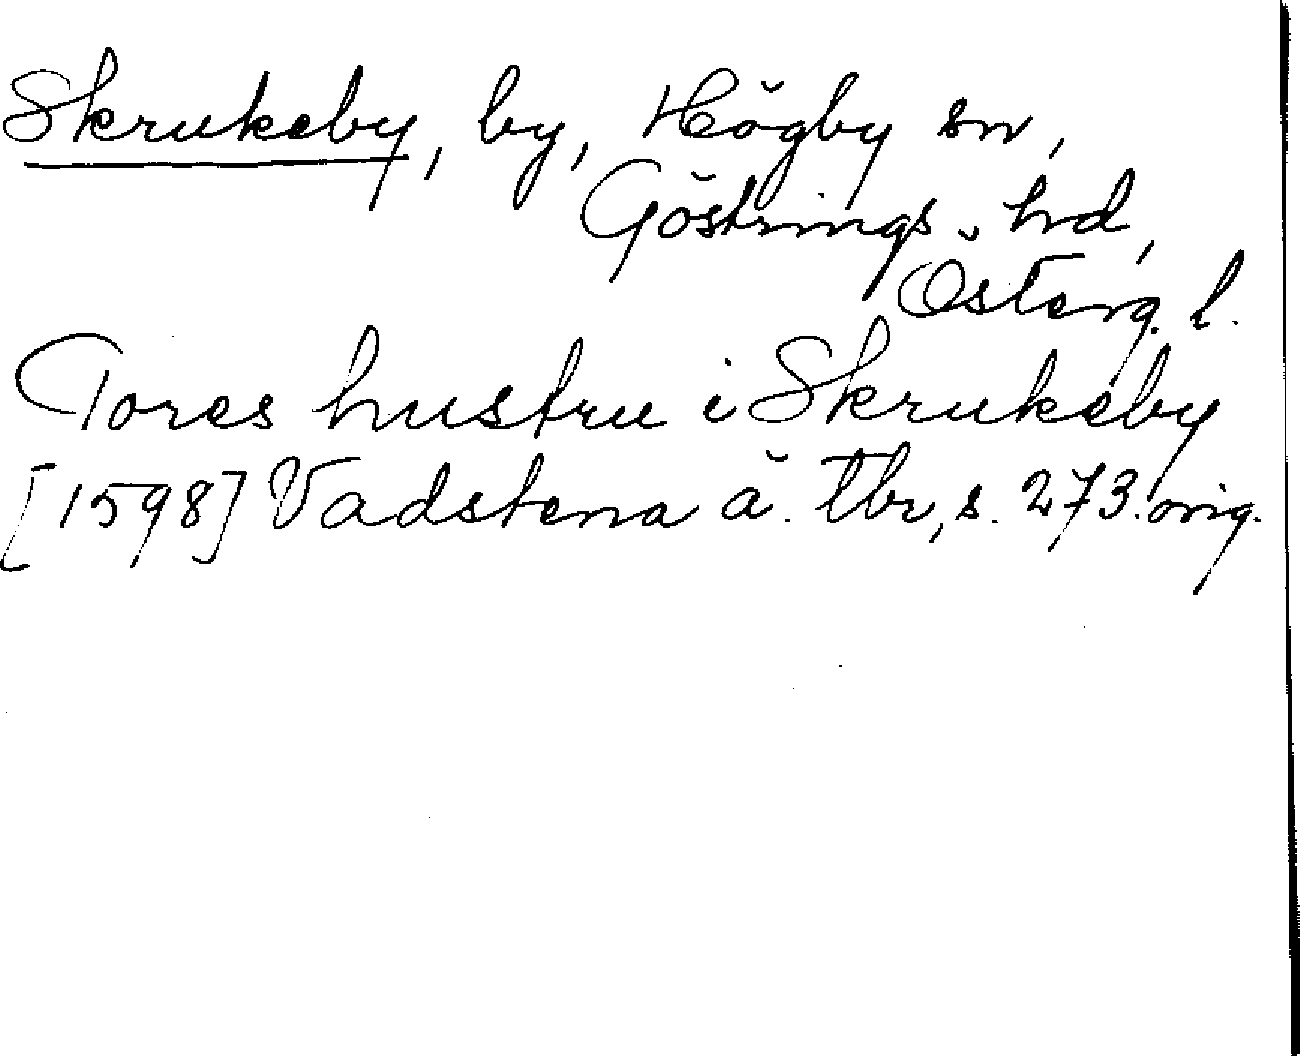 Skrukeby, by, Högby sn,
Göstrings hrd,
Österg. l.
Tores hustru i Skrukeby
[1598] Vadstena ä. tbr, s. 273. orig.